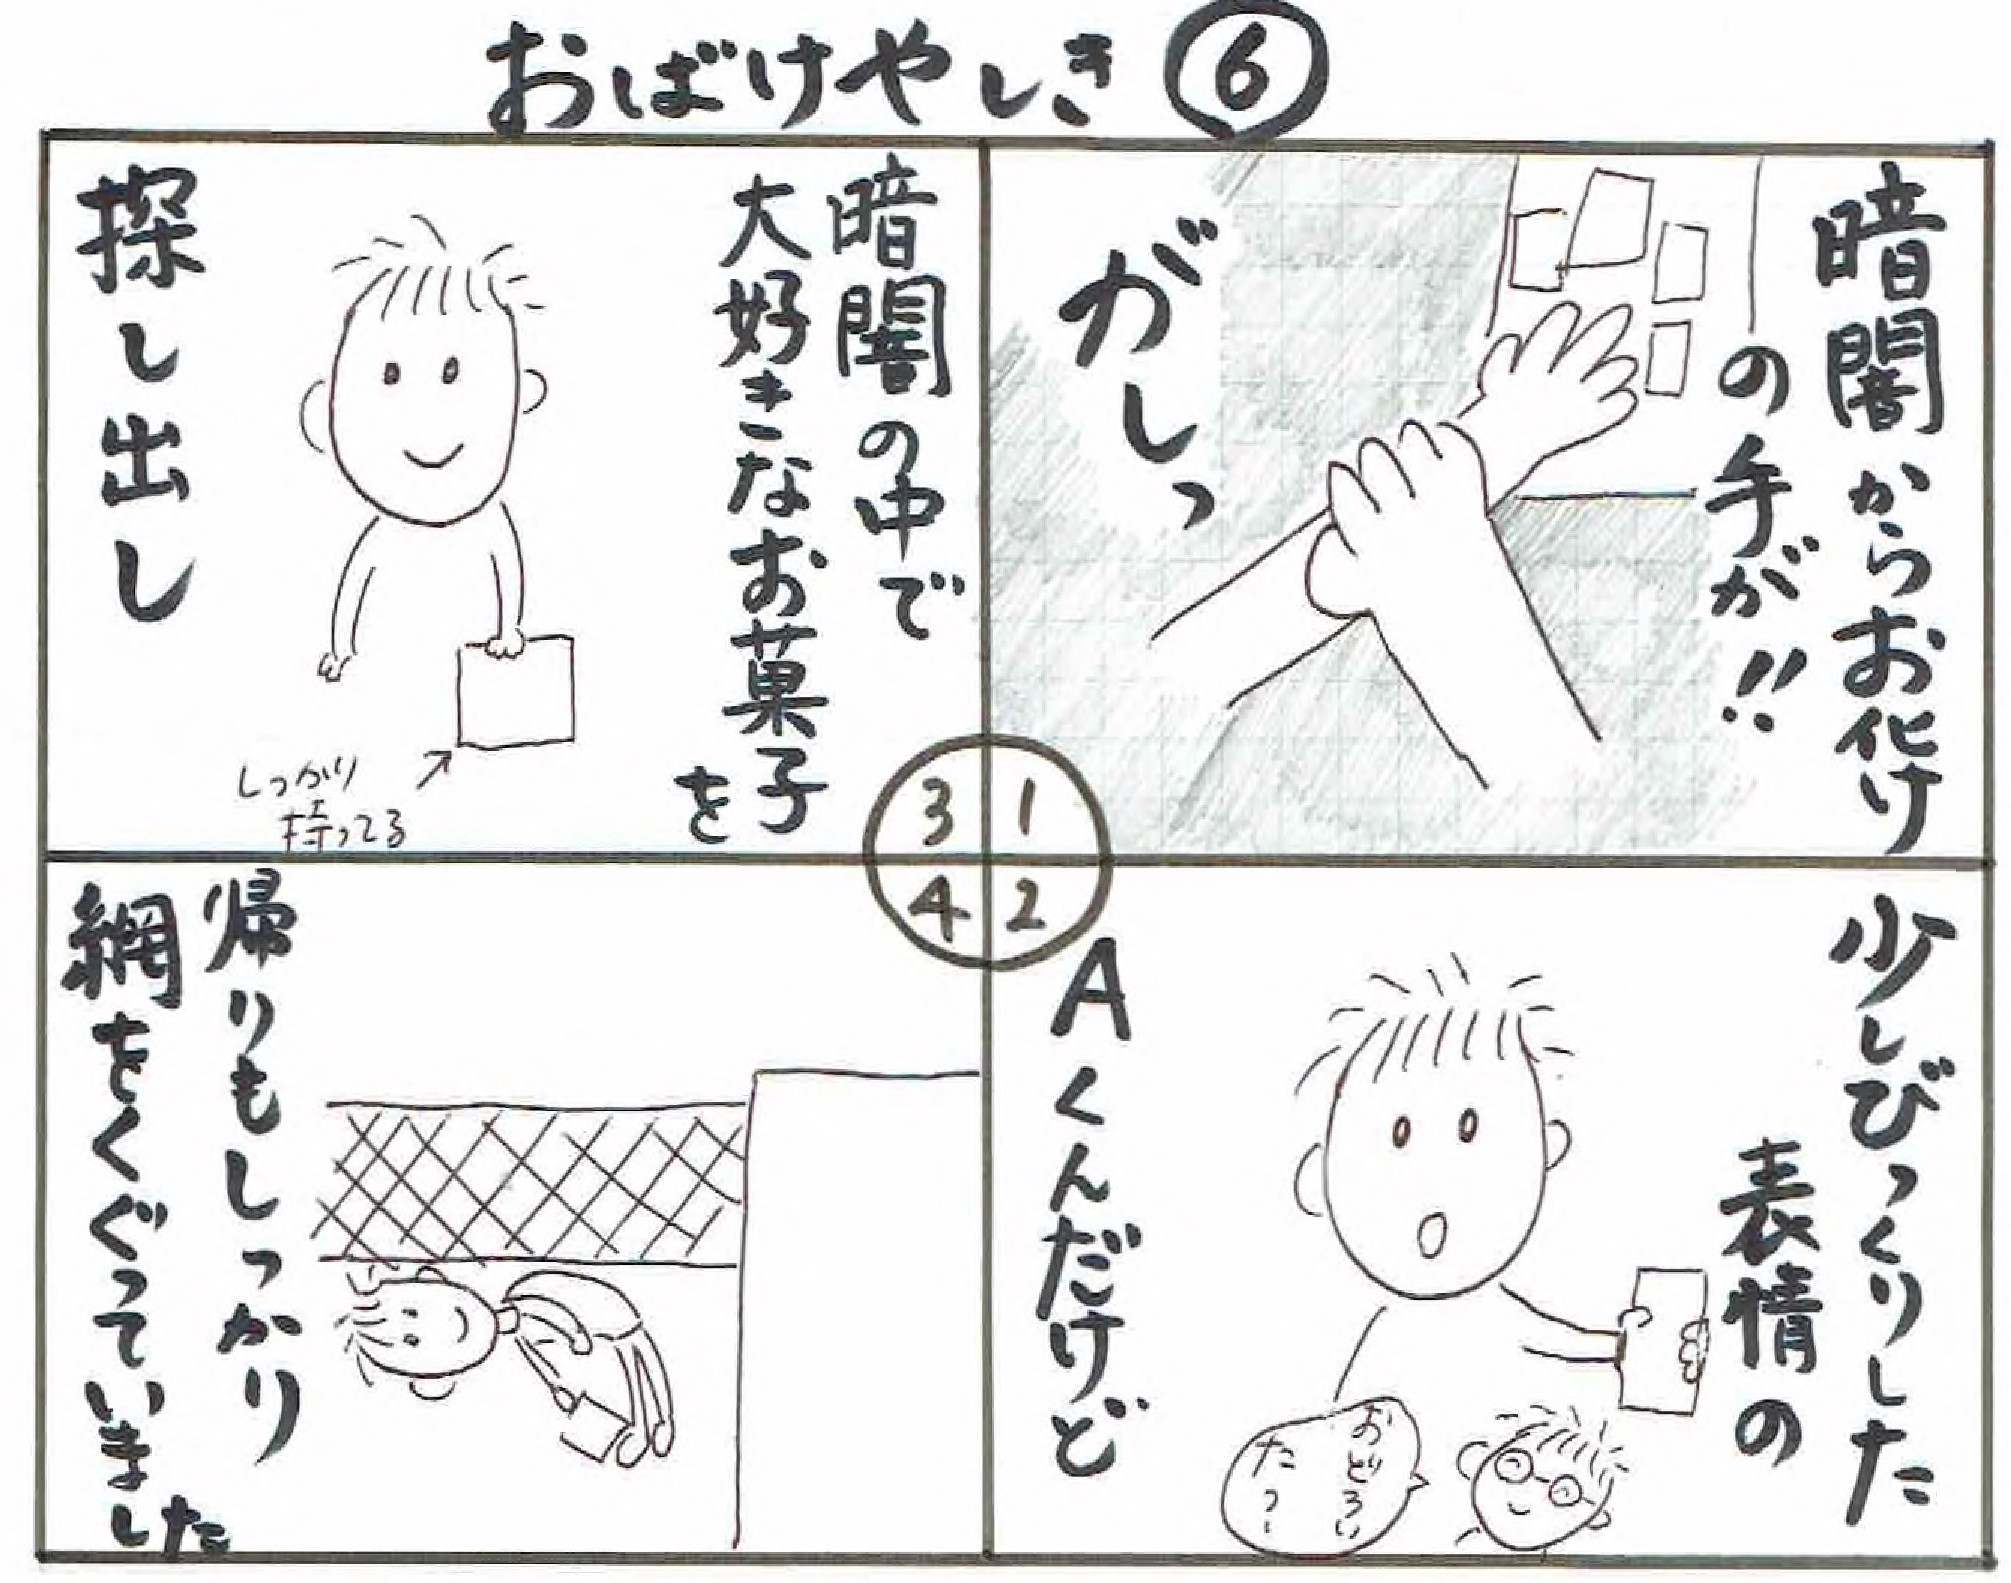 おばけやしき⑥
暗闇からお化け
の手が!!
がしっ
1
少しびっくりした
表情の
Aくんだけど
おどろい
た?
2
暗闇の中で
大好きなお菓子
を
探し出し
しっかり
持ってる
3
帰りもしっかり
網をくぐっていました
4